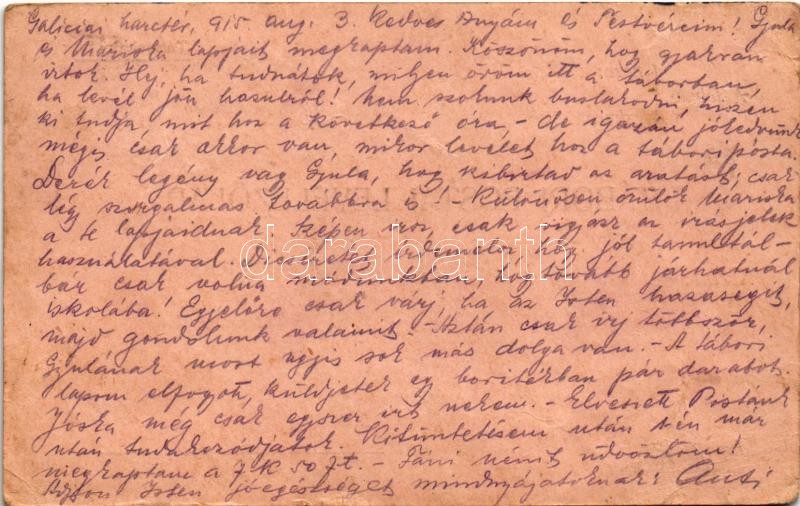 Galiciai harctér, 915 aug. 3. Kedves Anyám és Testvéreim! Gyula
és Mariska lapjait megkaptam. Köszönöm, hogy gyakran
irtok. Hej, ha tudnátok, milyen öröm itt a táborban,
ha levél jön hazulról! Nem szoktunk buslakodni, hiszen
ki tudja, mit hoz a következő óra - de igazán jókedvünk
mégis csak akkor van, mikor levelet hoz a tábori posta.
Derék legény vagy Gyula, hogy kibirtad az aratást; csak
légy szorgalmas továbbra is! - Különösen örülök Mariska
a te lapjaidnak. Szépen irsz, csak vigyázz az irásjelek
használatával. Dicséretet érdemelsz hogy jól tanultál -
bár csak volna módunkban, hogy tovább járhatnál
iskolába! Egyelőre csak várj, ha az Isten hazasegit,
majd gondolunk valamit. - Aztán csak irj többször,
Gyulának most ugyis sok más dolga van. - A tábori
lapom elfogyott, küldjetek egy boritékban pár darabot.
Jóska még csak egyszer irt nekem. - Elveszett Postánk
után tudakozódjatok. Kitüntetésem után én már
megkaptam a 7 K 50 ft. - Fáni nénit üdvözlöm!
Adjon Isten jó egészséget mindnyájatoknak: Anti
darabanth